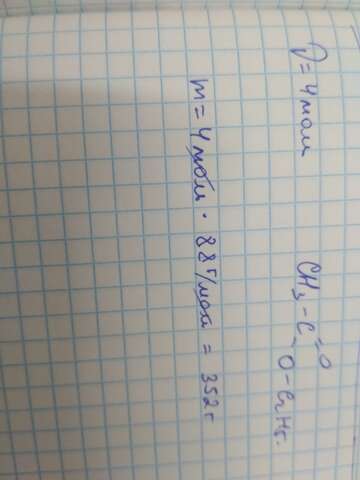 ν = 4 мол
CH₃-C=O
O-C₂H₅.
m = 4 мол · 88 г/мол = 352 г